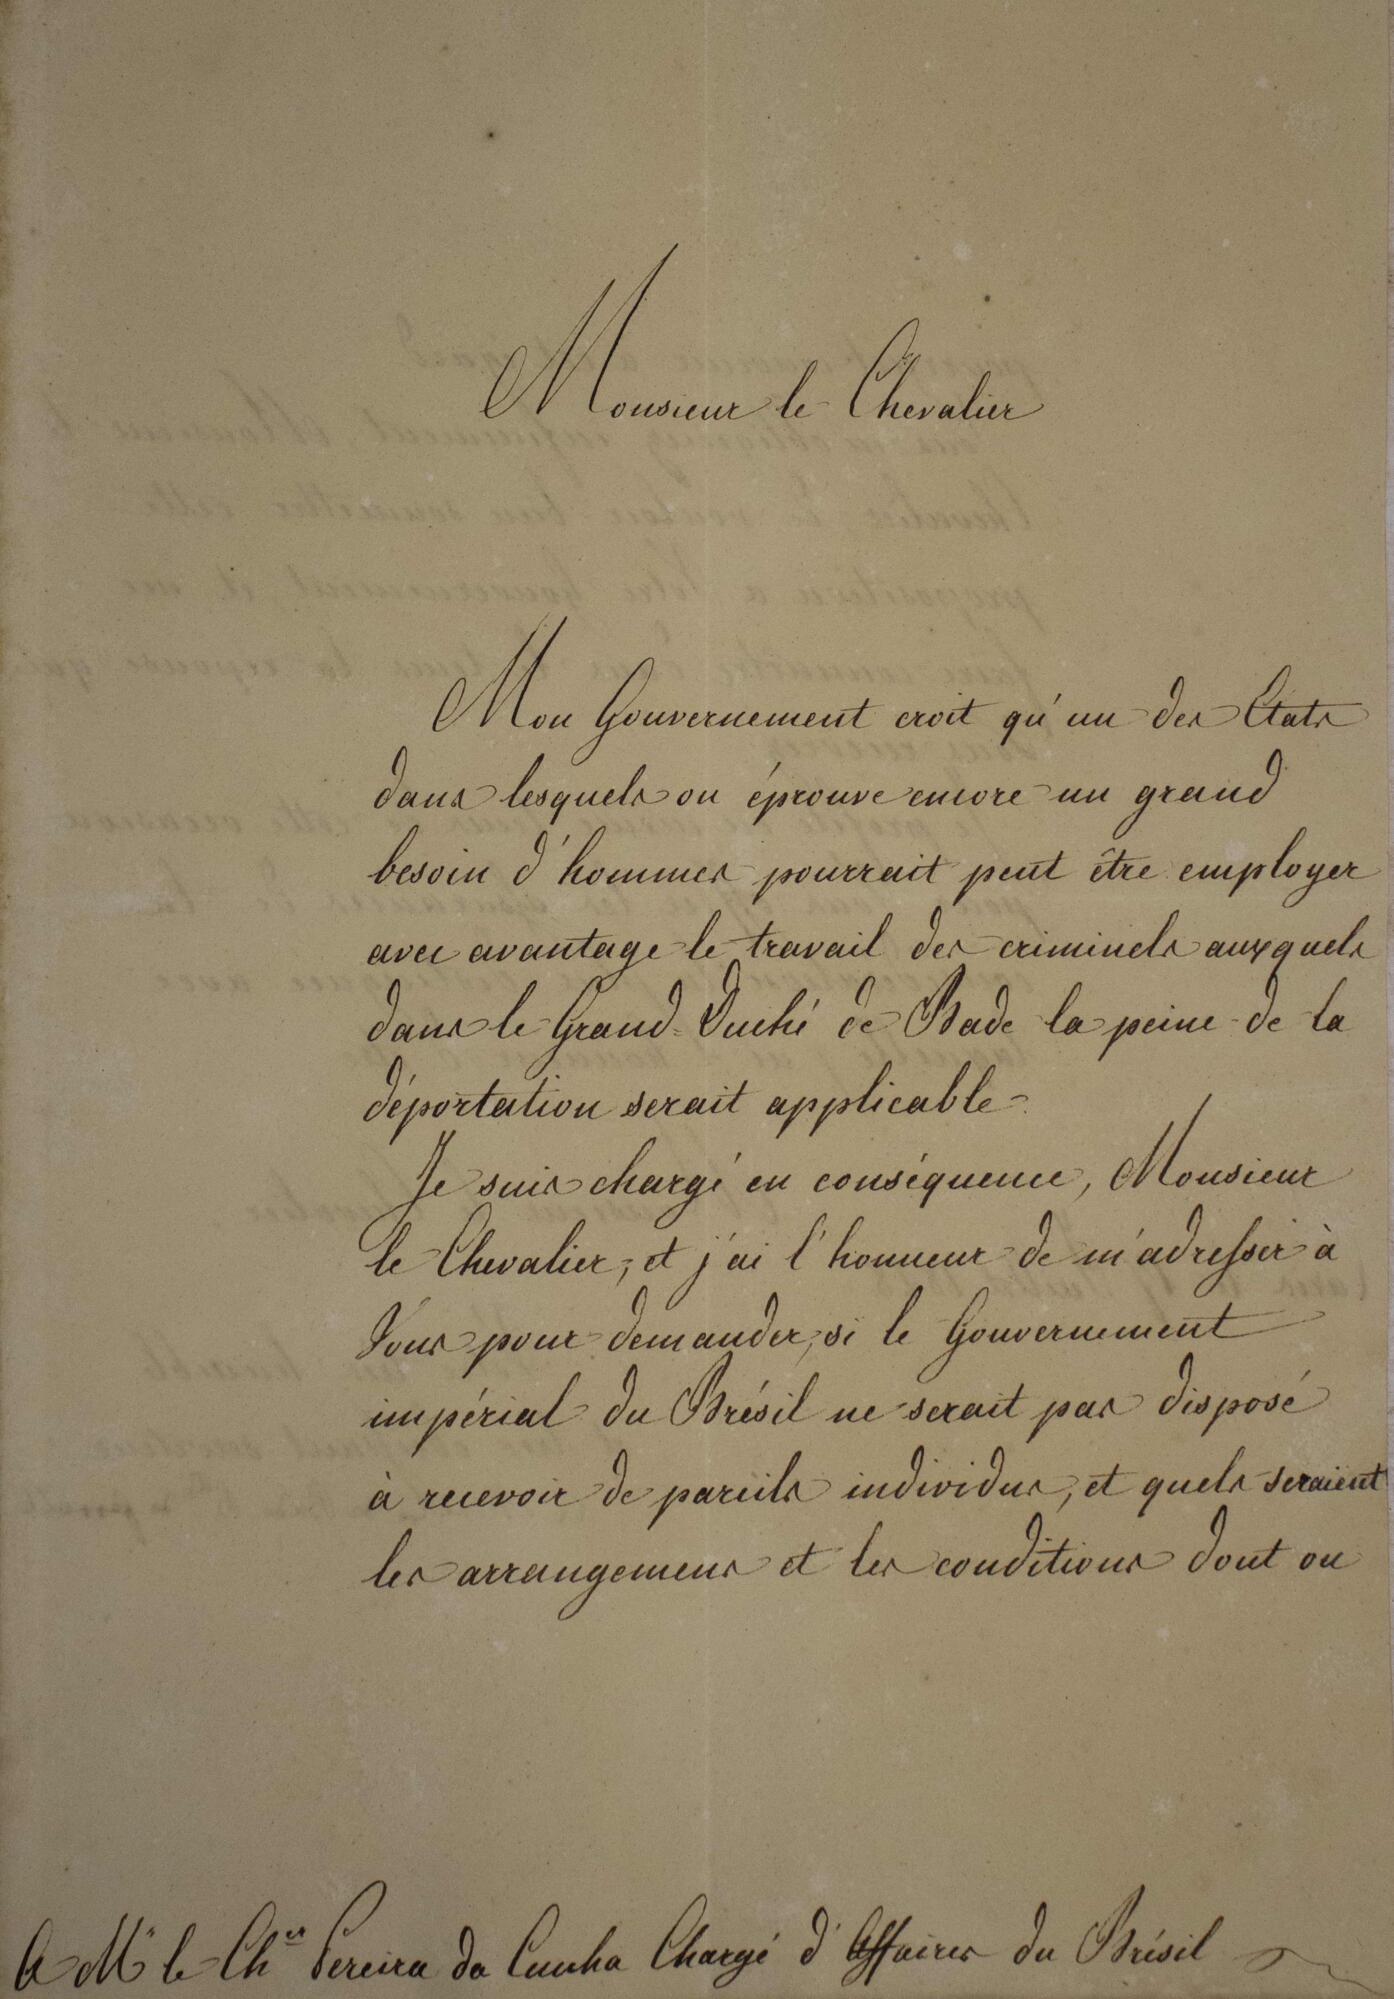 Monsieur le Chevalier
Mon Gouvernement croit qu'un des Etats
dans lesquels on éprouve encore un grand
besoin d'hommes pourrait peut être employer
avec avantage le travail des criminels auxquels
dans le Grand-Duché de Bade la peine de la
déportation serait applicable.
Je suis chargé en conséquence, Monsieur
le Chevalier, et j'ai l'honneur de m'adresser à
Vous pour demander, si le Gouvernement
impérial du Brésil ne serait pas disposé
à recevoir de pareils individus, et quels seraient
les arrangemens et les conditions dont on
A Mr le Cher Pereira da Cunha Chargé d'Affaires du Brésil